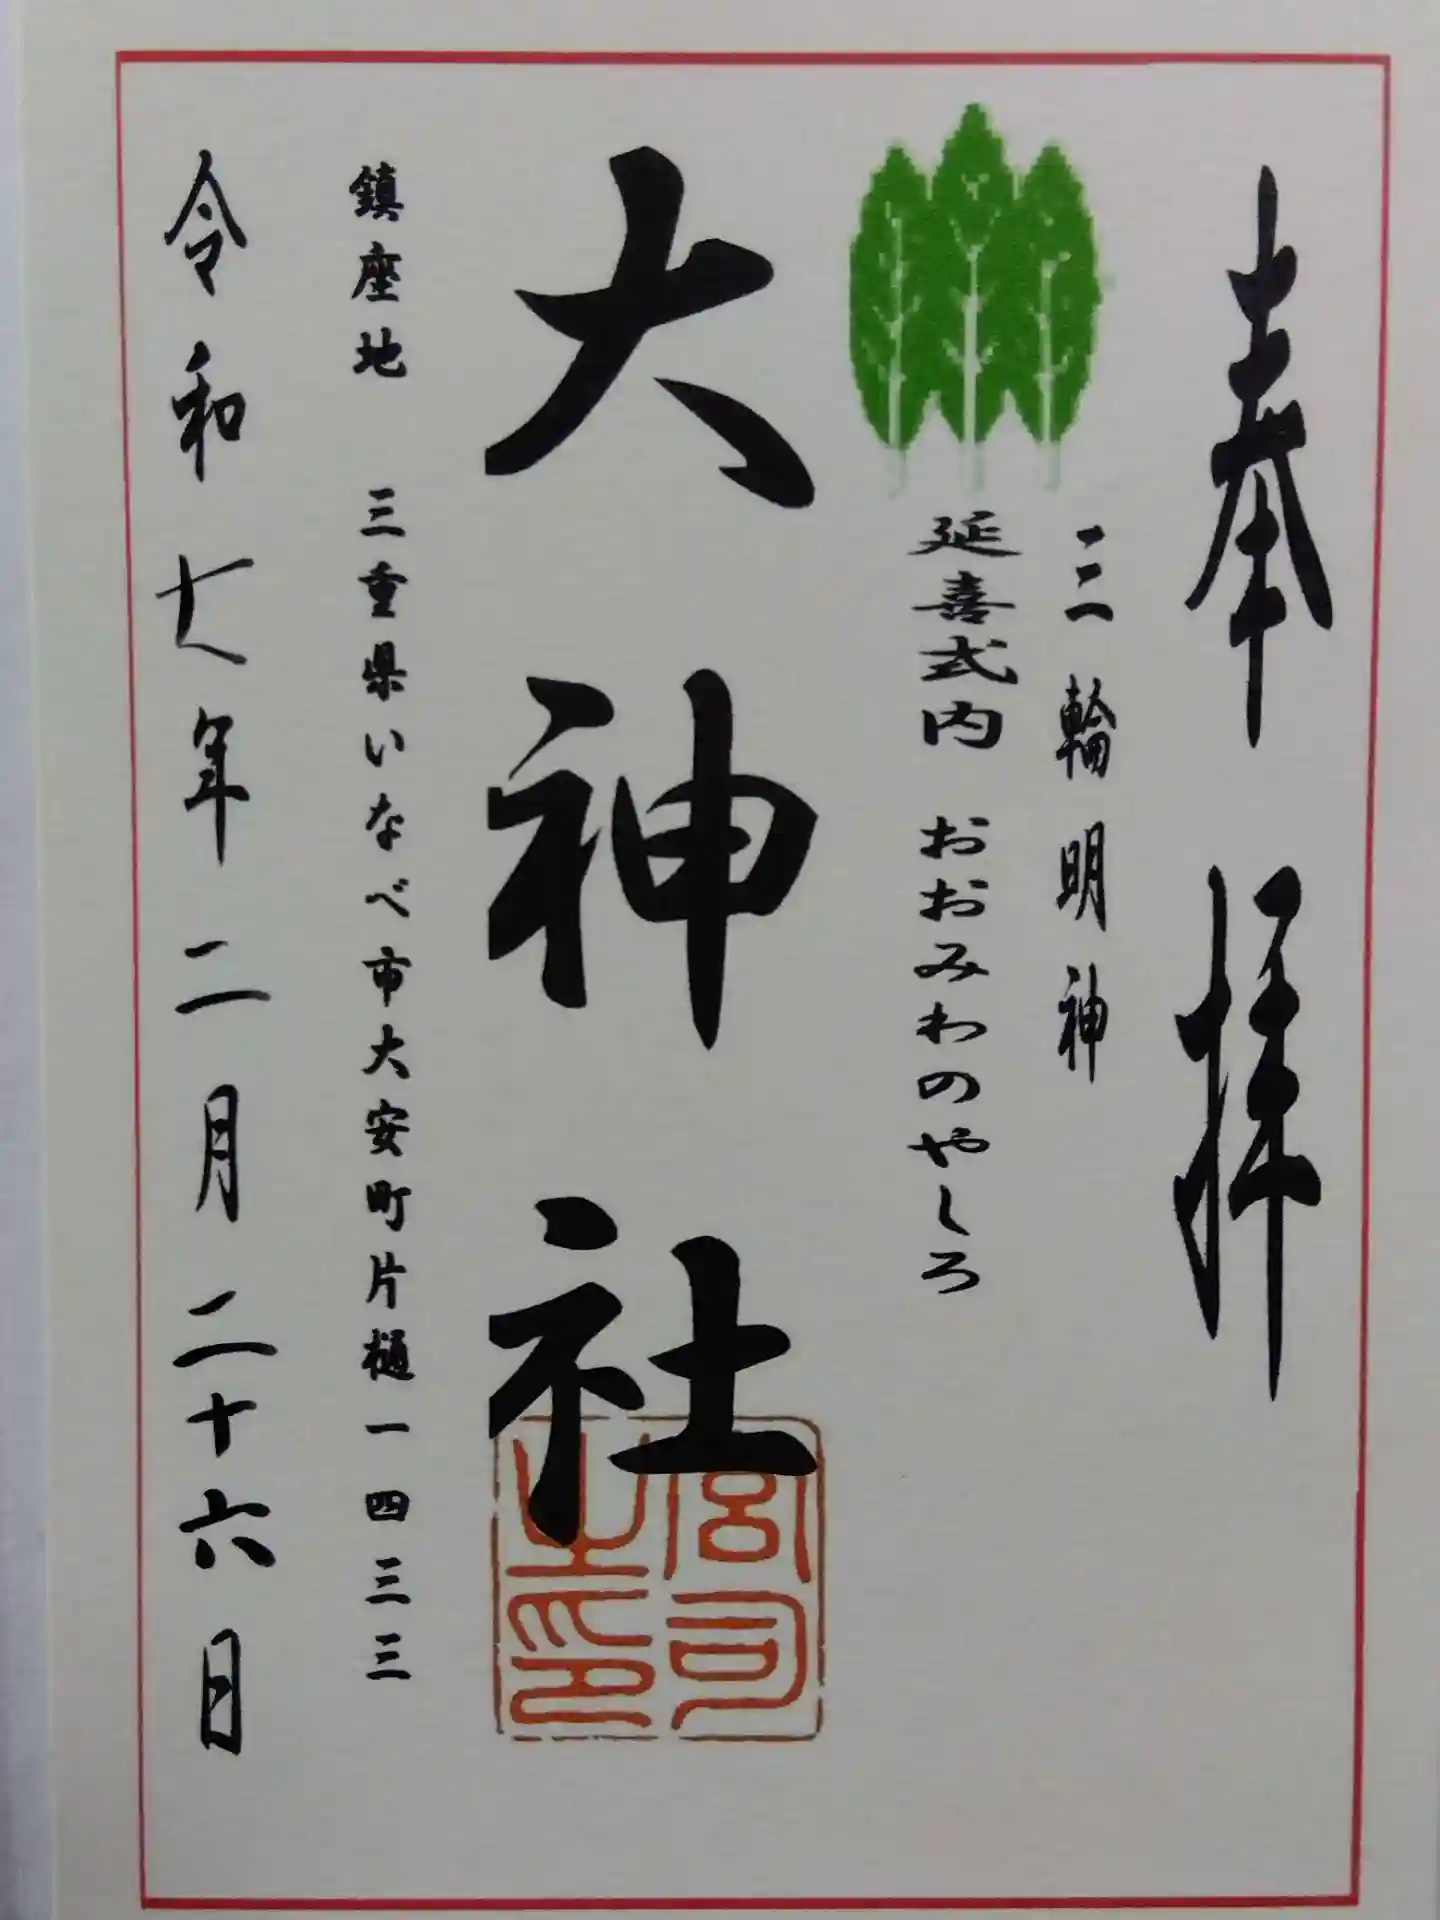 奉拝
三輪明神
延喜式内 おおみわのやしろ
大神社
宮司之印
鎮座地 三重県いなべ市大安町片樋一四三三
令和七年二月二十六日